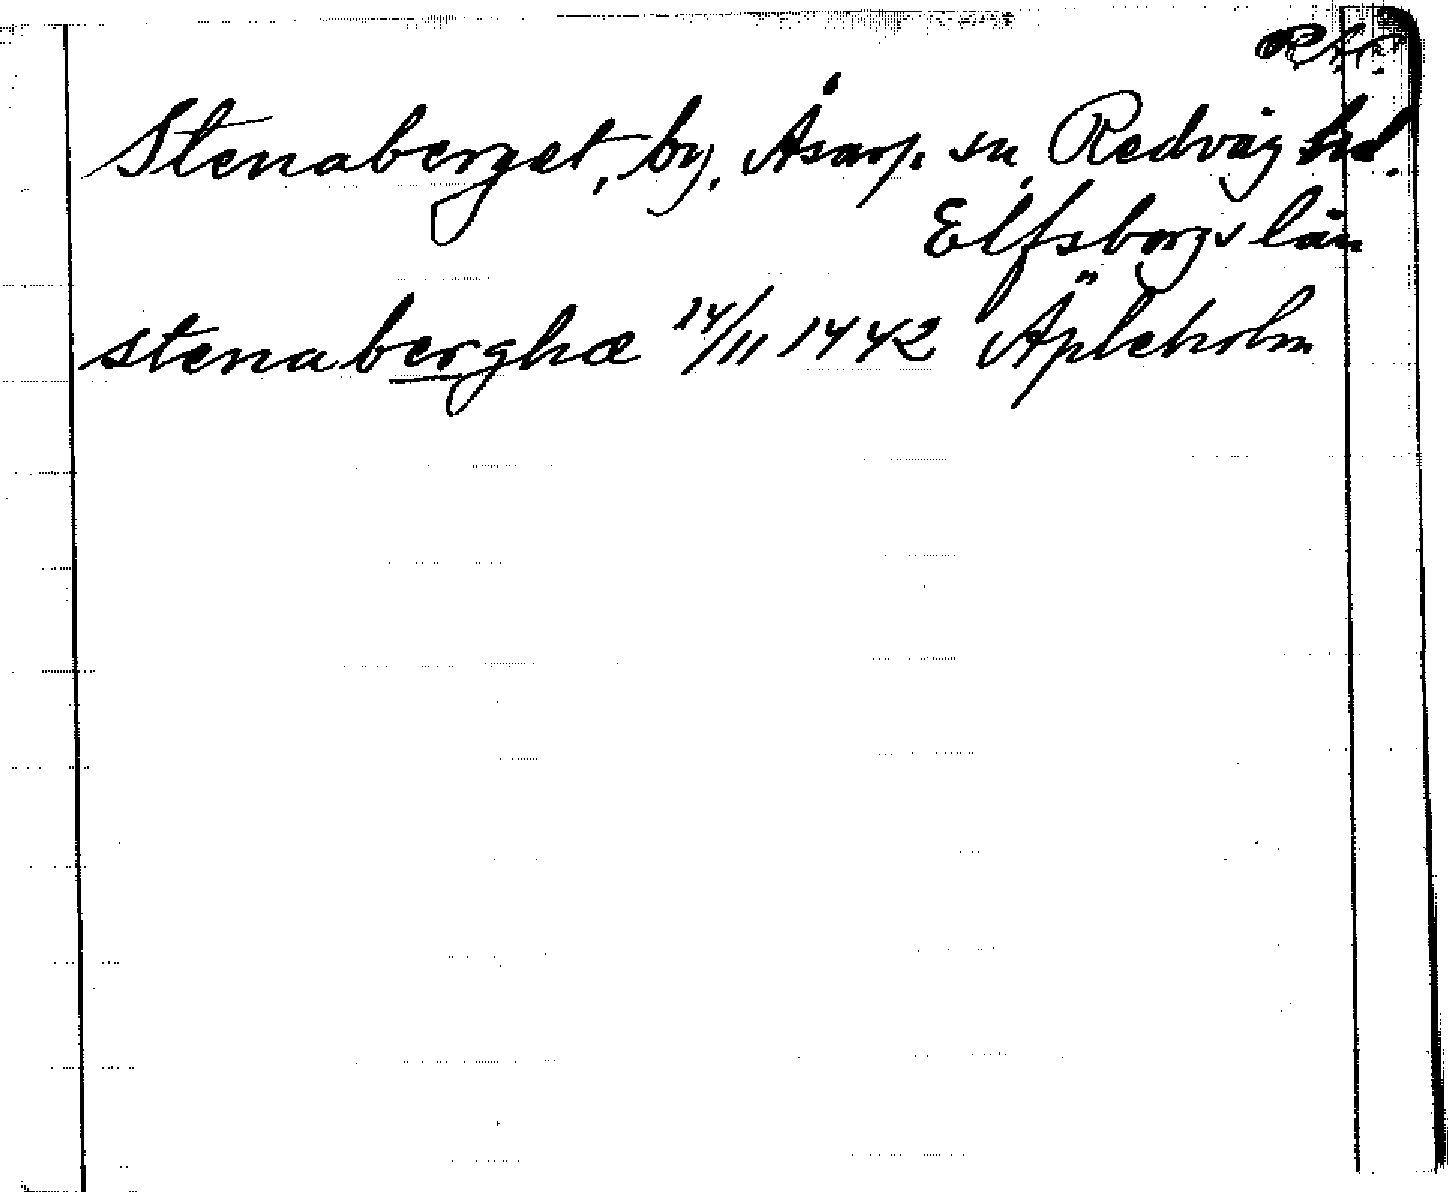 Stenaberget, by, Åsarp. sn Redväg hd.
Elfsborgs län
stenaberghæ 14/11 1442 Äpleholm